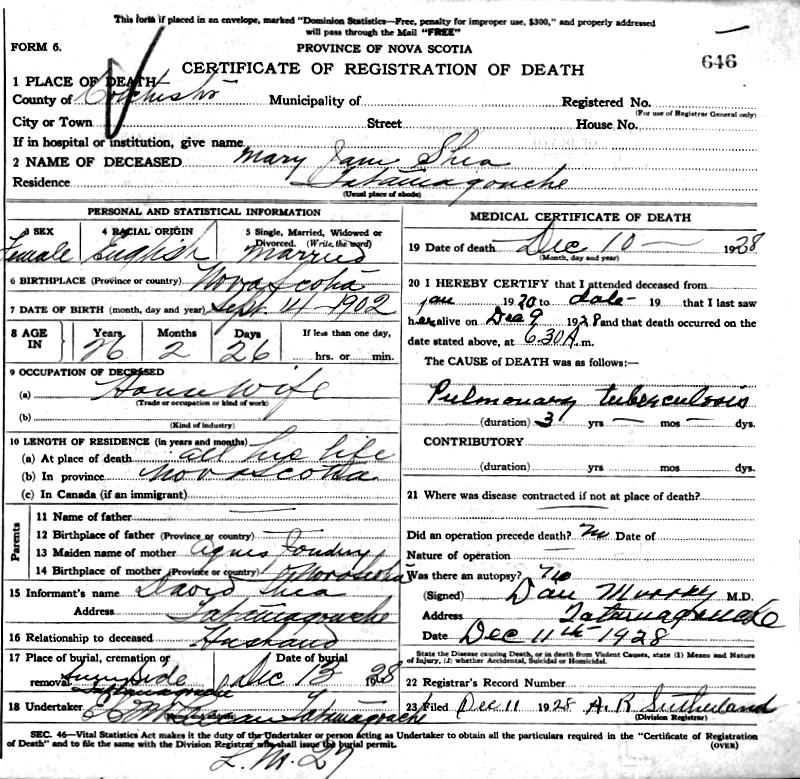 This form if placed in an envelope, marked "Dominion Statistics—Free, penalty for improper use, $300," and properly addressed
will pass through the Mail "FREE"
FORM 6.
PROVINCE OF NOVA SCOTIA
646
CERTIFICATE OF REGISTRATION OF DEATH
1 PLACE OF DEATH
County of Colchester Municipality of Registered No.
(For use of Registrar General only)
City or Town Street House No.
If in hospital or institution, give name
2 NAME OF DECEASED Mary Jane Shea
Residence Tatamagouche
(Usual place of abode)
PERSONAL AND STATISTICAL INFORMATION
3 SEX 4 RACIAL ORIGIN 5 Single, Married, Widowed or
Divorced. (Write the word)
Female English Married
6 BIRTHPLACE (Province or country) Nova Scotia
7 DATE OF BIRTH (month, day and year) Sept. 14 1902
8 AGE IN Years Months Days If less than one day,
26 2 26 hrs. or min.
9 OCCUPATION OF DECEASED
(a) House Wife
(Trade or occupation or kind of work)
(b)
(Kind of industry)
10 LENGTH OF RESIDENCE (in years and months)
(a) At place of death all his life
(b) In province Nova Scotia
(c) In Canada (if an immigrant)
Parents
11 Name of father —
12 Birthplace of father (Province or country) —
13 Maiden name of mother Agnes
14 Birthplace of mother (Province or country) Nova Scotia
15 Informant's name David Shea
Address Tatamagouche
16 Relationship to deceased Husband
17 Place of burial, cremation or Date of burial
removal Sunnyside Dec 13 1928
Tatamagouche
18 Undertaker Tatamagouche
MEDICAL CERTIFICATE OF DEATH
19 Date of death Dec 10 — 1928
(Month, day and year)
20 I HEREBY CERTIFY that I attended deceased from
Jan 1920 to date 19 that I last saw
her alive on Dec 9 1928 and that death occurred on
date stated above, at 6.30 A.m.
The CAUSE of DEATH was as follows:
Pulmonary tuberculosis
(duration) 3 yrs — mos — dys.
CONTRIBUTORY
(duration) yrs mos dys.
21 Where was disease contracted if not at place of death?
Did an operation precede death? no Date of
Nature of operation —
Was there an autopsy? No
(Signed) Dan Murray M.D.
Address Tatamagouche
Date Dec 11th 1928
State the Disease causing Death, or in death from Violent Causes, state (1) Means and Nature
of Injury, (2) whether Accidental, Suicidal or Homicidal.
22 Registrar's Record Number
23 Filed Dec 11 1928 A. R Sutherland
(Division Registrar)
SEC. 46—Vital Statistics Act makes it the duty of the Undertaker or person acting as Undertaker to obtain all the particulars required in the "Certificate of Registration
of Death" and to file the same with the Division Registrar who shall issue the burial permit.
(OVER)
L.M. 27